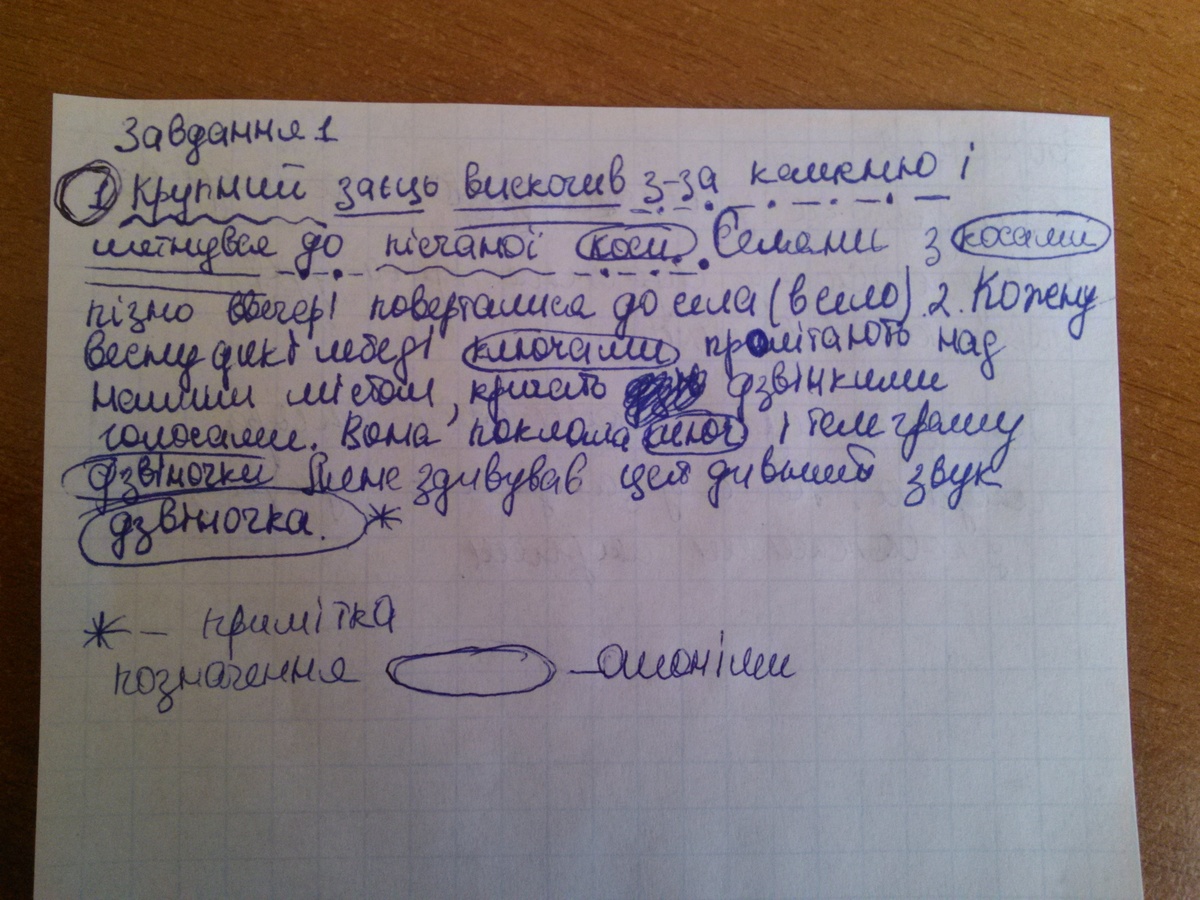 Завдання 1
1 Крупний заєць вискочив з-за каменю і
метнувся до пісчаної коси. Селяни з косами
пізно ввечері поверталися до села (в село). 2. Кожену
весну дикі лебеді ключами пролітають над
нашим містом, кричать дзвінкими
голосами. Вона поклала ключ і телеграму
дзвіночки Мене здивував цей дивний звук
дзвіночка. *
* – примітка
позначення – омоніми